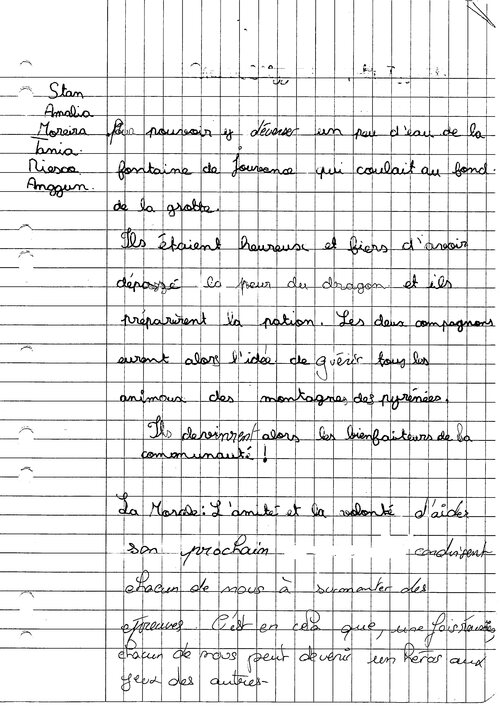 Stan
Amalia
Moreira
Tania
Riesco
Anggun.
Pour pouvoir y déverser un peu d'eau de la
fontaine de Jouvence qui coulait au fond
de la grotte.
Ils étaient heureux et fiers d'avoir
dépassé la peur du dragon et ils
préparèrent la potion. Les deux compagnons
eurent alors l'idée de guérir tous les
animaux des montagnes des pyrénées.
Ils devinrent alors les bienfaiteurs de la
communauté !
La Morale : L'amitié et la volonté d'aider
son prochain conduisent
chacun de nous à surmonter des
épreuves. C'est en cela que, une fois
chacun de nous peut devenir un héros aux
yeux des autres-